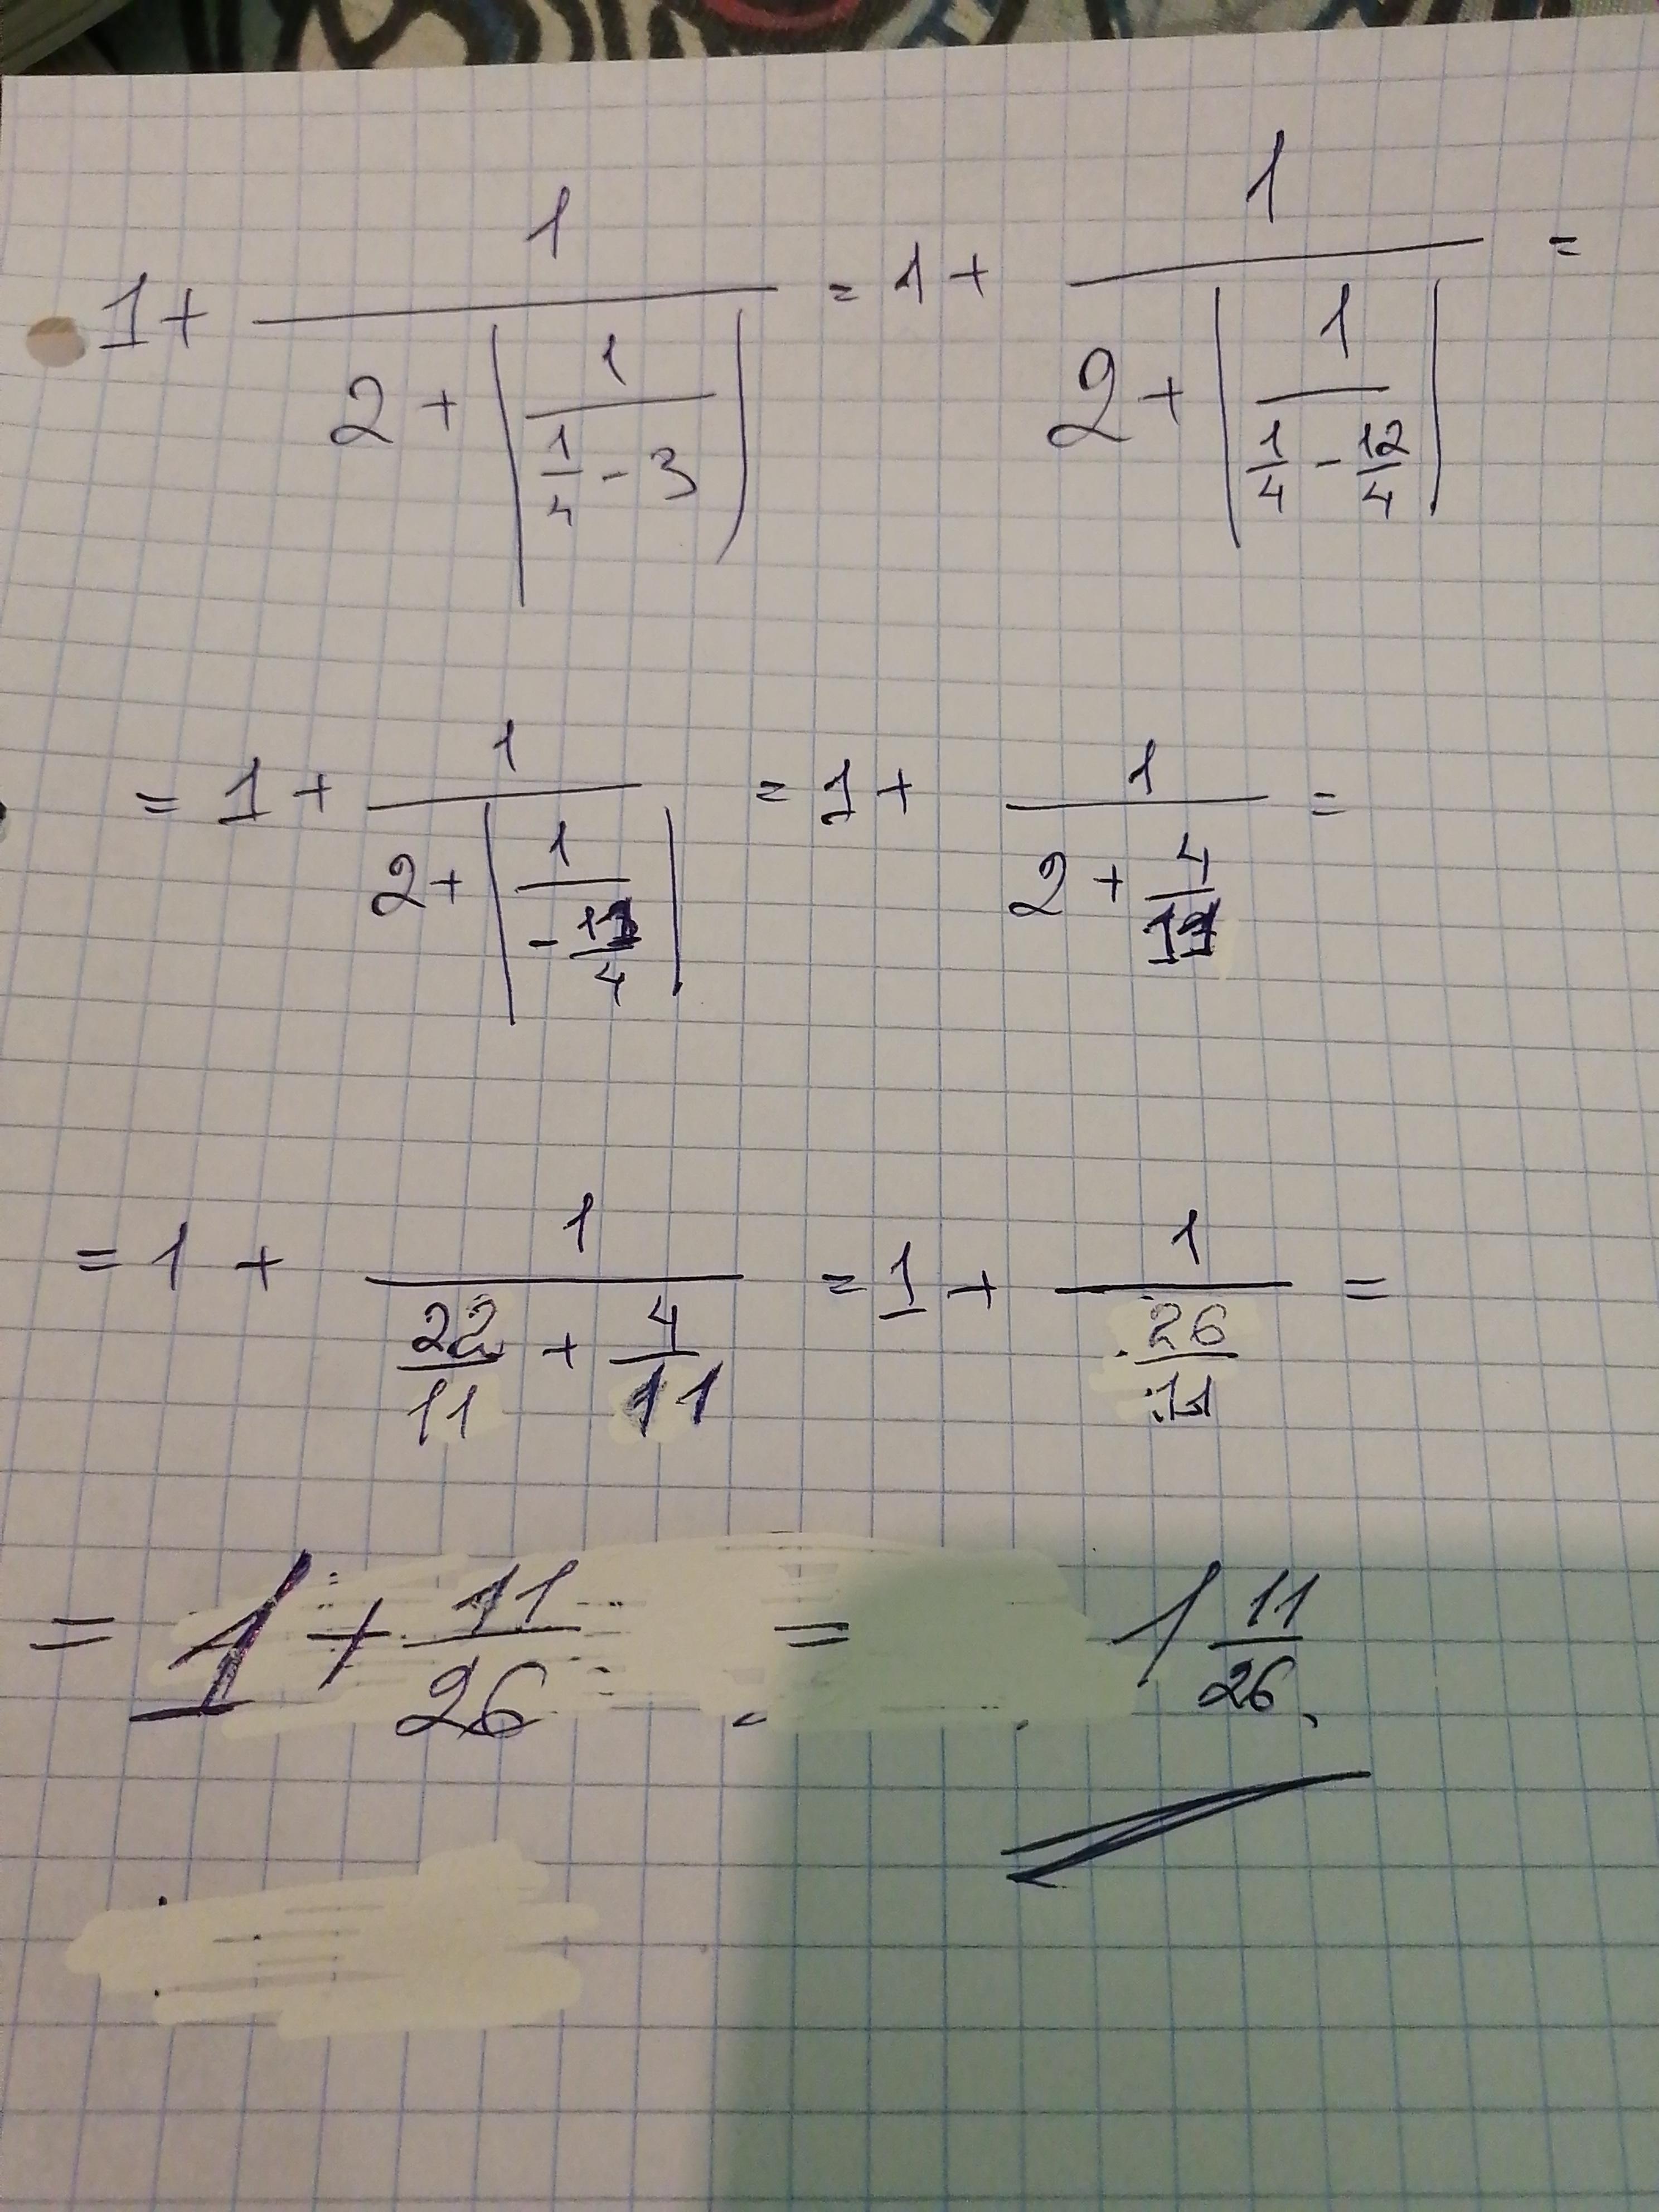 1 + 1/(2 + |1/(1/4 - 3)|) = 1 + 1/(2 + |1/(1/4 - 12/4)|) =
= 1 + 1/(2 + |1/(-11/4)|) = 1 + 1/(2 + 4/11) =
= 1 + 1/(22/11 + 4/11) = 1 + 1/(26/11) =
= 1 + 11/26 = 1 11/26.